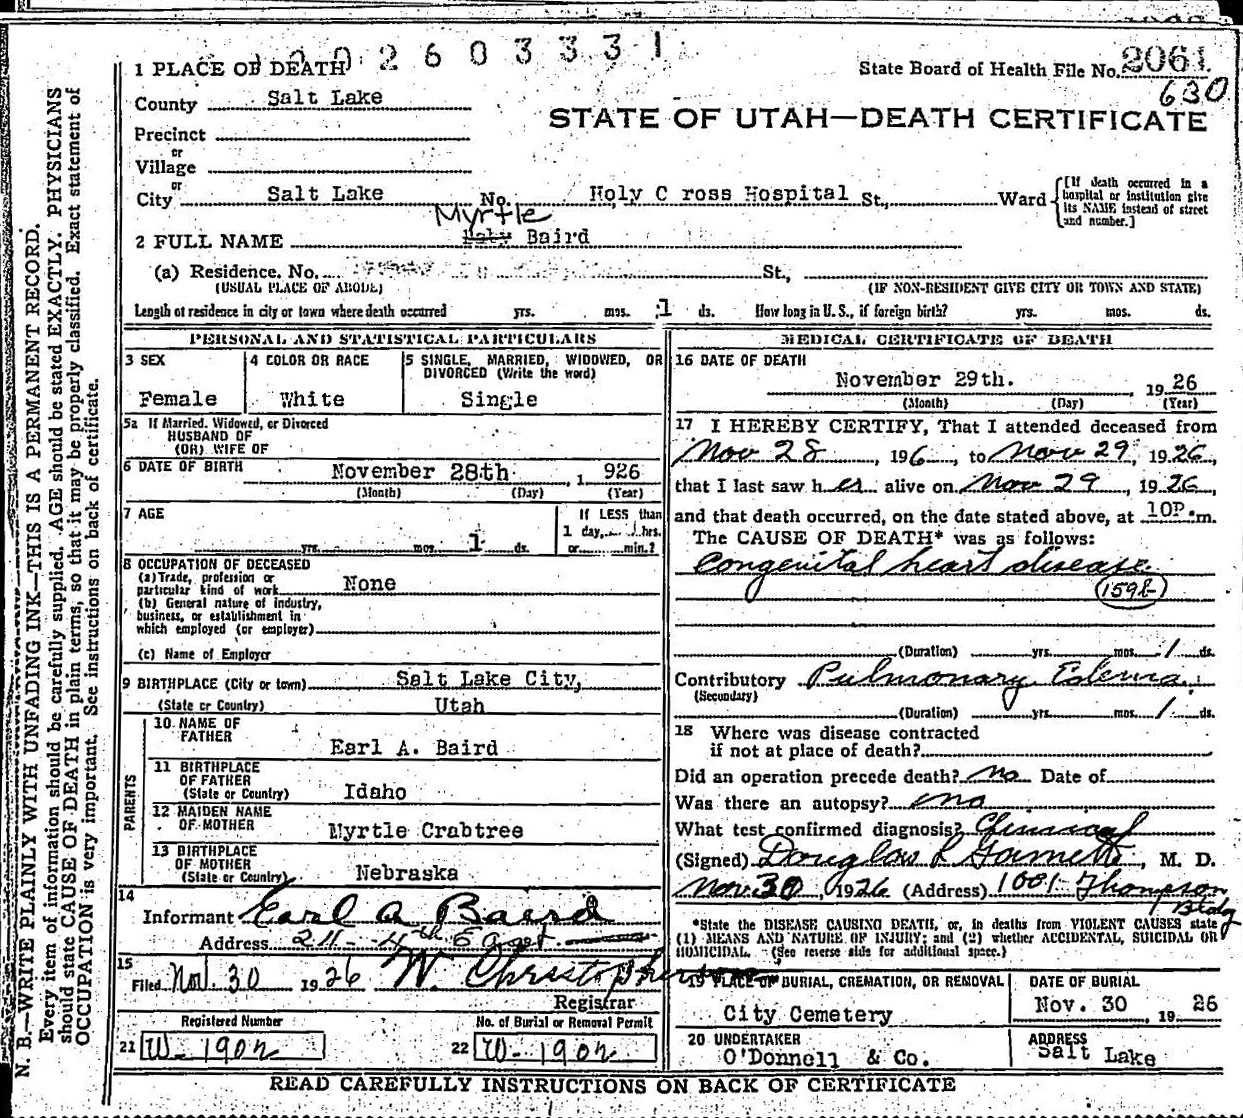 1 PLACE OF DEATH 2 6 0 3 3 3 1
State Board of Health File No. 2061
630
County Salt Lake
STATE OF UTAH—DEATH CERTIFICATE
Precinct
or
Village
or
City Salt Lake No. Holy C ross Hospital St., Ward
[If death occurred in a
hospital or institution give
its NAME instead of street
and number.]
Myrtle
2 FULL NAME Baby Baird
(a) Residence. No. St.,
(USUAL PLACE OF ABODE) (IF NON-RESIDENT GIVE CITY OR TOWN AND STATE)
Length of residence in city or town where death occurred yrs. mos. 1 ds. How long in U. S., if foreign birth? yrs. mos. ds.
PERSONAL AND STATISTICAL PARTICULARS
3 SEX 4 COLOR OR RACE 5 SINGLE, MARRIED, WIDOWED, OR
DIVORCED (Write the word)
Female White Single
5a If Married, Widowed, or Divorced
HUSBAND OF
(OR) WIFE OF
6 DATE OF BIRTH November 28th , 1 926
(Month) (Day) (Year)
7 AGE If LESS than
1 day, hrs.
yrs. mos. 1 ds. or min.?
8 OCCUPATION OF DECEASED
(a) Trade, profession or
particular kind of work None
(b) General nature of industry,
business, or establishment in
which employed (or employer)
(c) Name of Employer
9 BIRTHPLACE (City or town) Salt Lake City,
(State or Country) Utah
PARENTS
10 NAME OF
FATHER Earl A. Baird
11 BIRTHPLACE
OF FATHER
(State or Country) Idaho
12 MAIDEN NAME
OF MOTHER Myrtle Crabtree
13 BIRTHPLACE
OF MOTHER
(State or Country) Nebraska
14
Informant Earl A Baird
Address 211 - 4th East
15
Filed Nov. 30 1926 W. Christopherson
Registrar
Registered Number No. of Burial or Removal Permit
21 W-1902 22 W-1902
MEDICAL CERTIFICATE OF DEATH
16 DATE OF DEATH
November 29th. 19 26
(Month) (Day) (Year)
17 I HEREBY CERTIFY, That I attended deceased from
Nov 28, 196, to Nov 29, 1926,
that I last saw her alive on Nov 29, 1926,
and that death occurred, on the date stated above, at 10P.m.
The CAUSE OF DEATH* was as follows:
Congenital heart disease
(Duration) yrs. mos. 1 ds.
Contributory Pulmonary Edema
(Secondary)
(Duration) yrs. mos. 1 ds.
18 Where was disease contracted
if not at place of death?
Did an operation precede death? no Date of
Was there an autopsy? no
What test confirmed diagnosis? Clinical
(Signed) Douglas, M. D.
Nov 30, 1926 (Address) 1001 Thompson
Bldg
*State the DISEASE CAUSING DEATH, or, in deaths from VIOLENT CAUSES state
(1) MEANS AND NATURE OF INJURY; and (2) whether ACCIDENTAL, SUICIDAL OR
HOMICIDAL. (See reverse side for additional space.)
19 PLACE OF BURIAL, CREMATION, OR REMOVAL DATE OF BURIAL
City Cemetery Nov. 30, 19 26
20 UNDERTAKER ADDRESS
O'Donnell & Co. Salt Lake
READ CAREFULLY INSTRUCTIONS ON BACK OF CERTIFICATE
N. B.—WRITE PLAINLY WITH UNFADING INK—THIS IS A PERMANENT RECORD.
Every item of information should be carefully supplied. AGE should be stated EXACTLY. PHYSICIANS
should state CAUSE OF DEATH in plain terms, so that it may be properly classified. Exact statement of
OCCUPATION is very important. See instructions on back of certificate.